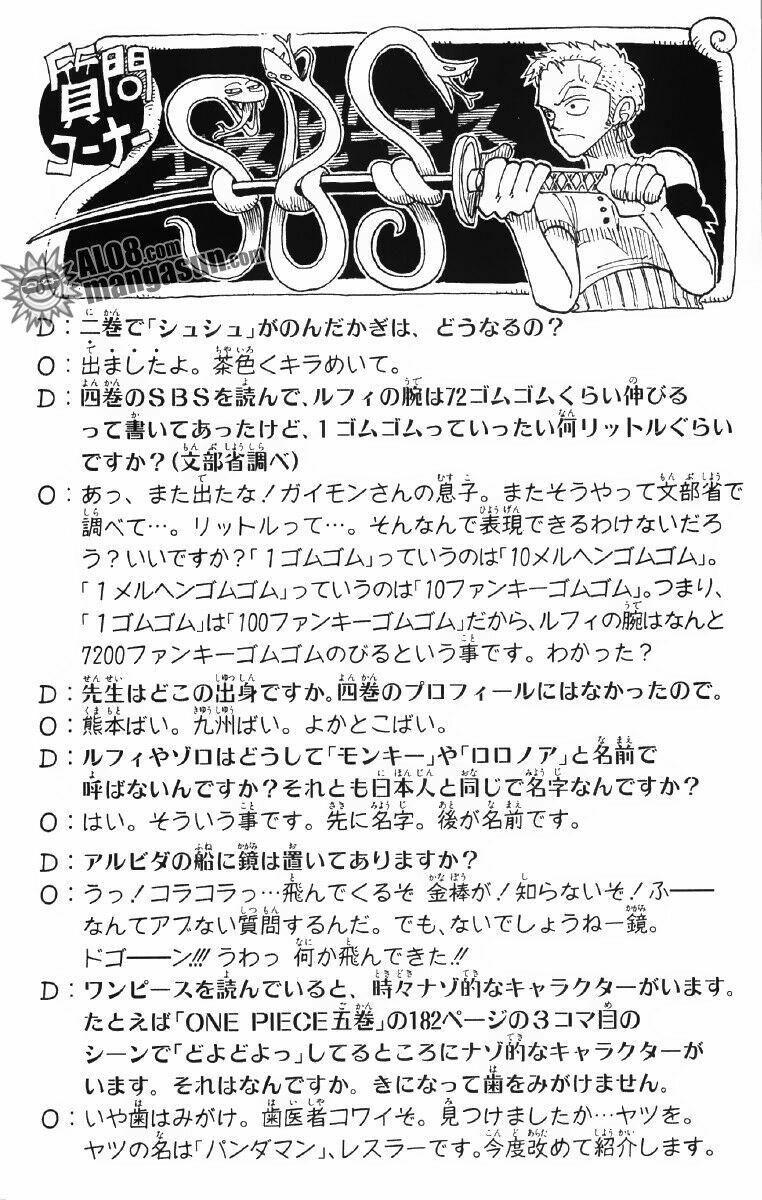 質問
コーナー
SBS
エスビーエス
AL08.com
mangasun.com
D：二巻で「シュシュ」がのんだかぎは、どうなるの？
O：出ましたよ。茶色くキラめいて。
D：四巻のＳＢＳを読んで、ルフィの腕は72ゴムゴムくらい伸びる
って書いてあったけど、１ゴムゴムっていったい何リットルぐらい
ですか？(文部省調べ)
O：あっ、また出たな！ガイモンさんの息子。またそうやって文部省で
調べて…。リットルって…。そんなんで表現できるわけないだろ
う？いいですか？「１ゴムゴム」っていうのは「10メルヘンゴムゴム」。
「１メルヘンゴムゴム」っていうのは「10ファンキーゴムゴム」。つまり、
「１ゴムゴム」は「100ファンキーゴムゴム」だから、ルフィの腕はなんと
7200ファンキーゴムゴムのびるという事です。わかった？
D：先生はどこの出身ですか。四巻のプロフィールにはなかったので。
O：熊本ばい。九州ばい。よかとこばい。
D：ルフィやゾロはどうして「モンキー」や「ロロノア」と名前で
呼ばないんですか？それとも日本人と同じで名字なんですか？
O：はい。そういう事です。先に名字。後が名前です。
D：アルビダの船に鏡は置いてありますか？
O：うっ！コラコラっ…飛んでくるぞ 金棒が！知らないぞ！ふ——
なんてアブない質問するんだ。でも、ないでしょうねー鏡。
ドゴ——ン!!! うわっ 何か飛んできた!!
D：ワンピースを読んでいると、時々ナゾ的なキャラクターがいます。
たとえば「ONE PIECE五巻」の182ページの３コマ目の
シーンで「どよどよっ」してるところにナゾ的なキャラクターが
います。それはなんですか。きになって歯をみがけません。
O：いや歯はみがけ。歯医者コワイぞ。見つけましたか…ヤツを。
ヤツの名は「パンダマン」、レスラーです。今度改めて紹介します。